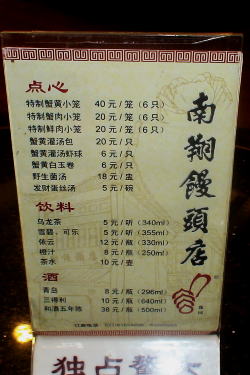 南翔饅頭店
点心
特制蟹黄小笼 40元/笼(6只)
特制蟹肉小笼 20元/笼(6只)
特制鲜肉小笼 20元/笼(6只)
蟹黄灌汤包 20元/只
蟹黄灌汤虾球 6元/只
蟹黄白玉卷 6元/只
野生菌汤 18元/盅
发财蛋丝汤 5元/碗
饮料
乌龙茶 5元/听(340ml)
雪碧、可乐 5元/听(355ml)
依云 12元/瓶(330ml)
橙汁 8元/瓶(250ml)
茶水 10元/壶
酒
青岛 8元/瓶(296ml)
三得利 10元/瓶(640ml)
和酒五年陈 38元/瓶(500ml)
独占鳌